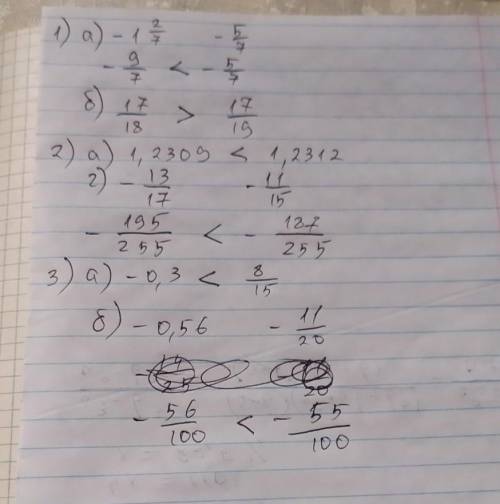 1) а) -1 2/7   -5/7
-9/7 < -5/7
б) 17/18 > 17/19
2) а) 1,2309 < 1,2312
г) -13/17   -11/15
-195/255 < -187/255
3) а) -0,3 < 8/15
б) -0,56   -11/20
-56/100 < -55/100